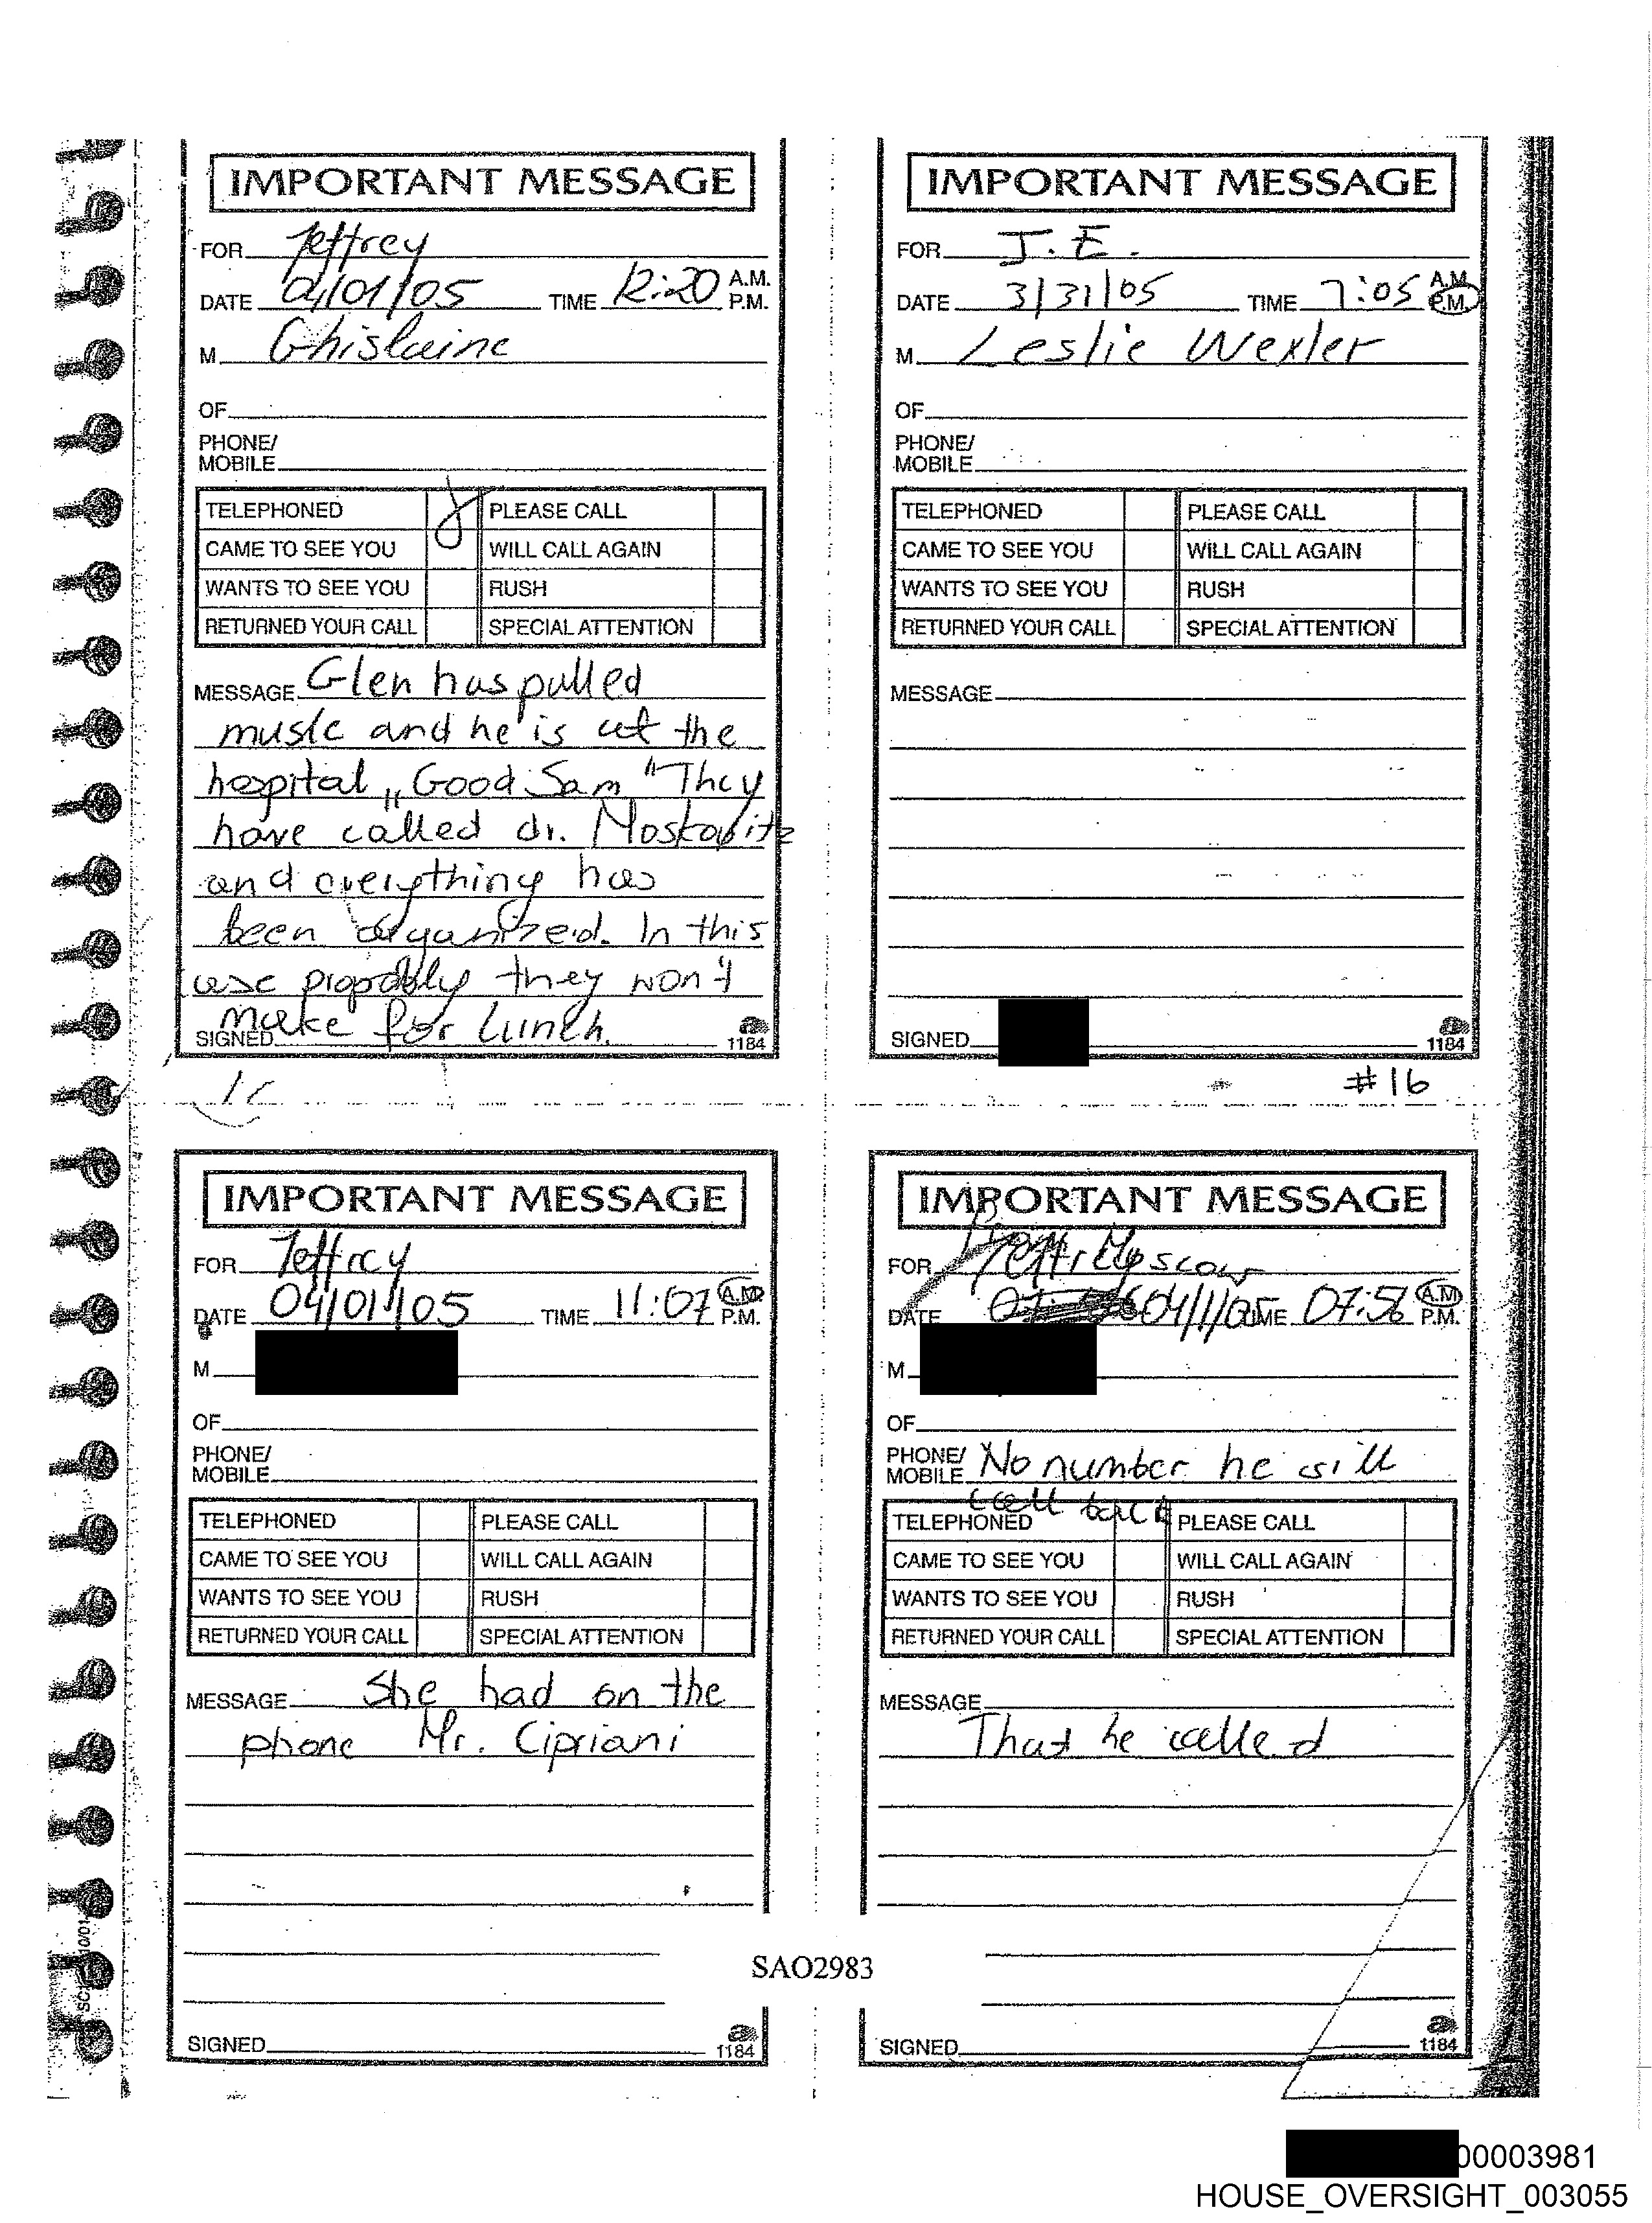 IMPORTANT MESSAGE
FOR Jeffrey
DATE 04/01/05 TIME 12:20 A.M. P.M.
M Ghislaine
OF
PHONE/
MOBILE
TELEPHONED PLEASE CALL
CAME TO SEE YOU WILL CALL AGAIN
WANTS TO SEE YOU RUSH
RETURNED YOUR CALL SPECIAL ATTENTION
MESSAGE Glen has pulled
muslc and he is at the
hospital „Good Sam" They
have called dr. Moskovitz
and everything has
been organized. In this
case proprobly they won't
make for lunch.
SIGNED
1184
IMPORTANT MESSAGE
FOR J.E.
DATE 3/31/05 TIME 7:05 A.M. P.M.
M Leslie Wexler
OF
PHONE/
MOBILE
TELEPHONED PLEASE CALL
CAME TO SEE YOU WILL CALL AGAIN
WANTS TO SEE YOU RUSH
RETURNED YOUR CALL SPECIAL ATTENTION
MESSAGE
SIGNED
1184
#16
IMPORTANT MESSAGE
FOR Jeffrey
DATE 04/01/05 TIME 11:07 A.M. P.M.
M
OF
PHONE/
MOBILE
TELEPHONED PLEASE CALL
CAME TO SEE YOU WILL CALL AGAIN
WANTS TO SEE YOU RUSH
RETURNED YOUR CALL SPECIAL ATTENTION
MESSAGE She had on the
phone Mr. Cipriani
SIGNED
1184
IMPORTANT MESSAGE
FOR
DATE 04/1/05 TIME 07:56 A.M. P.M.
M
OF
PHONE/
MOBILE No number he will
call back
TELEPHONED PLEASE CALL
CAME TO SEE YOU WILL CALL AGAIN
WANTS TO SEE YOU RUSH
RETURNED YOUR CALL SPECIAL ATTENTION
MESSAGE
That he called
SIGNED
1184
SAO2983
00003981
HOUSE_OVERSIGHT_003055